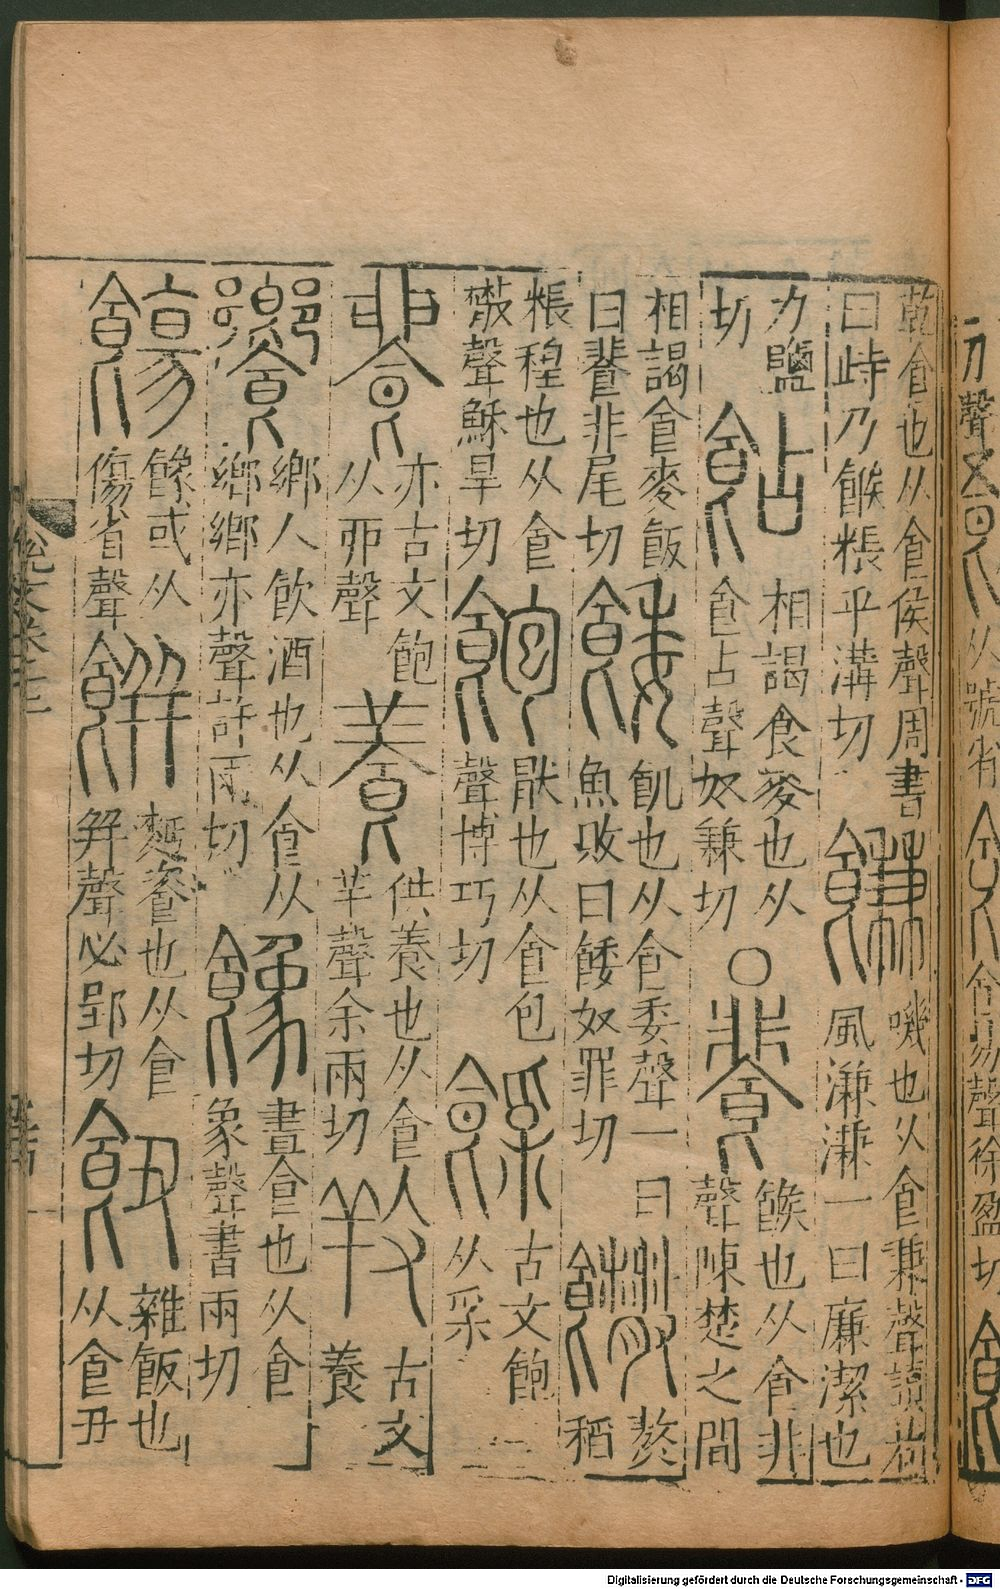 刀聲
从號省
食昜聲徐盈切
乾食也从食侯聲周書曰峙乃餱粻乎溝切 𩜌 嘰也从食兼聲讀若風溓溓一曰廉潔也
力鹽切 䬯 相謁食麥也从食占聲奴兼切 〇 餥 餱也从食非聲陳楚之間
相謁食麥飯曰餥非尾切 餧 飢也从食委聲一曰魚敗曰餧奴罪切 饊 熬稻
粻䅣也从食㪔聲穌旱切 飽 猒也从食包聲博巧切 𩛖 古文飽从采
亦古文飽从丣聲 養 供養也从食人羊聲余兩切 羏 古文養
饗 鄉人飲酒也从食从鄉鄉亦聲許兩切 𩞧 晝食也从食象聲書兩切
𩜋 餯或从傷省聲 餅 麪餈也从食幷聲必郢切 飿 雜飯也从食丑
說文卷五
Digitalisierung gefördert durch die Deutsche Forschungsgemeinschaft - DFG